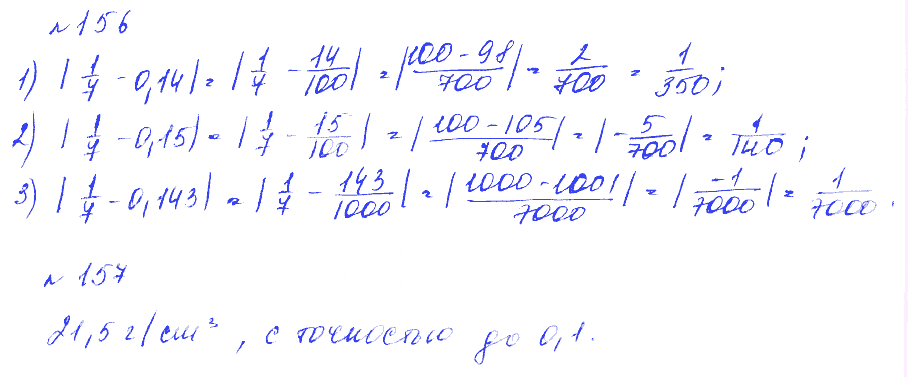 № 156
1) | 1/7 - 0,14 | = | 1/7 - 14/100 | = | (100 - 98)/700 | = 2/700 = 1/350;
2) | 1/7 - 0,15 | = | 1/7 - 15/100 | = | (100 - 105)/700 | = | -5/700 | = 1/140;
3) | 1/7 - 0,143 | = | 1/7 - 143/1000 | = | (1000 - 1001)/7000 | = | -1/7000 | = 1/7000.
№ 157
21,5 г/см³, с точностью до 0,1.